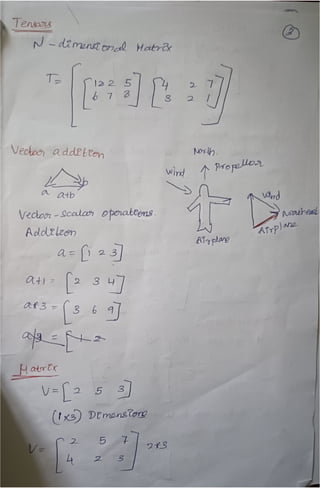 Tensors
2
N-dimensional Matrix
T = [ [ 1 2 2 5
6 7 8 ] [ 4 2 7
3 2 1 ] ]
Vector addition
a b
a+b
North
Propellor
wind
Airplane
wind
Airplane
Vector-scalar operations.
Addition
a = [ 1 2 3 ]
a+1 = [ 2 3 4 ]
a*3 = [ 3 6 9 ]
Matrix
V = [ 2 5 3 ]
(1x3) Dimensions
V = [ 2 5 7
4 2 3 ] 2x3